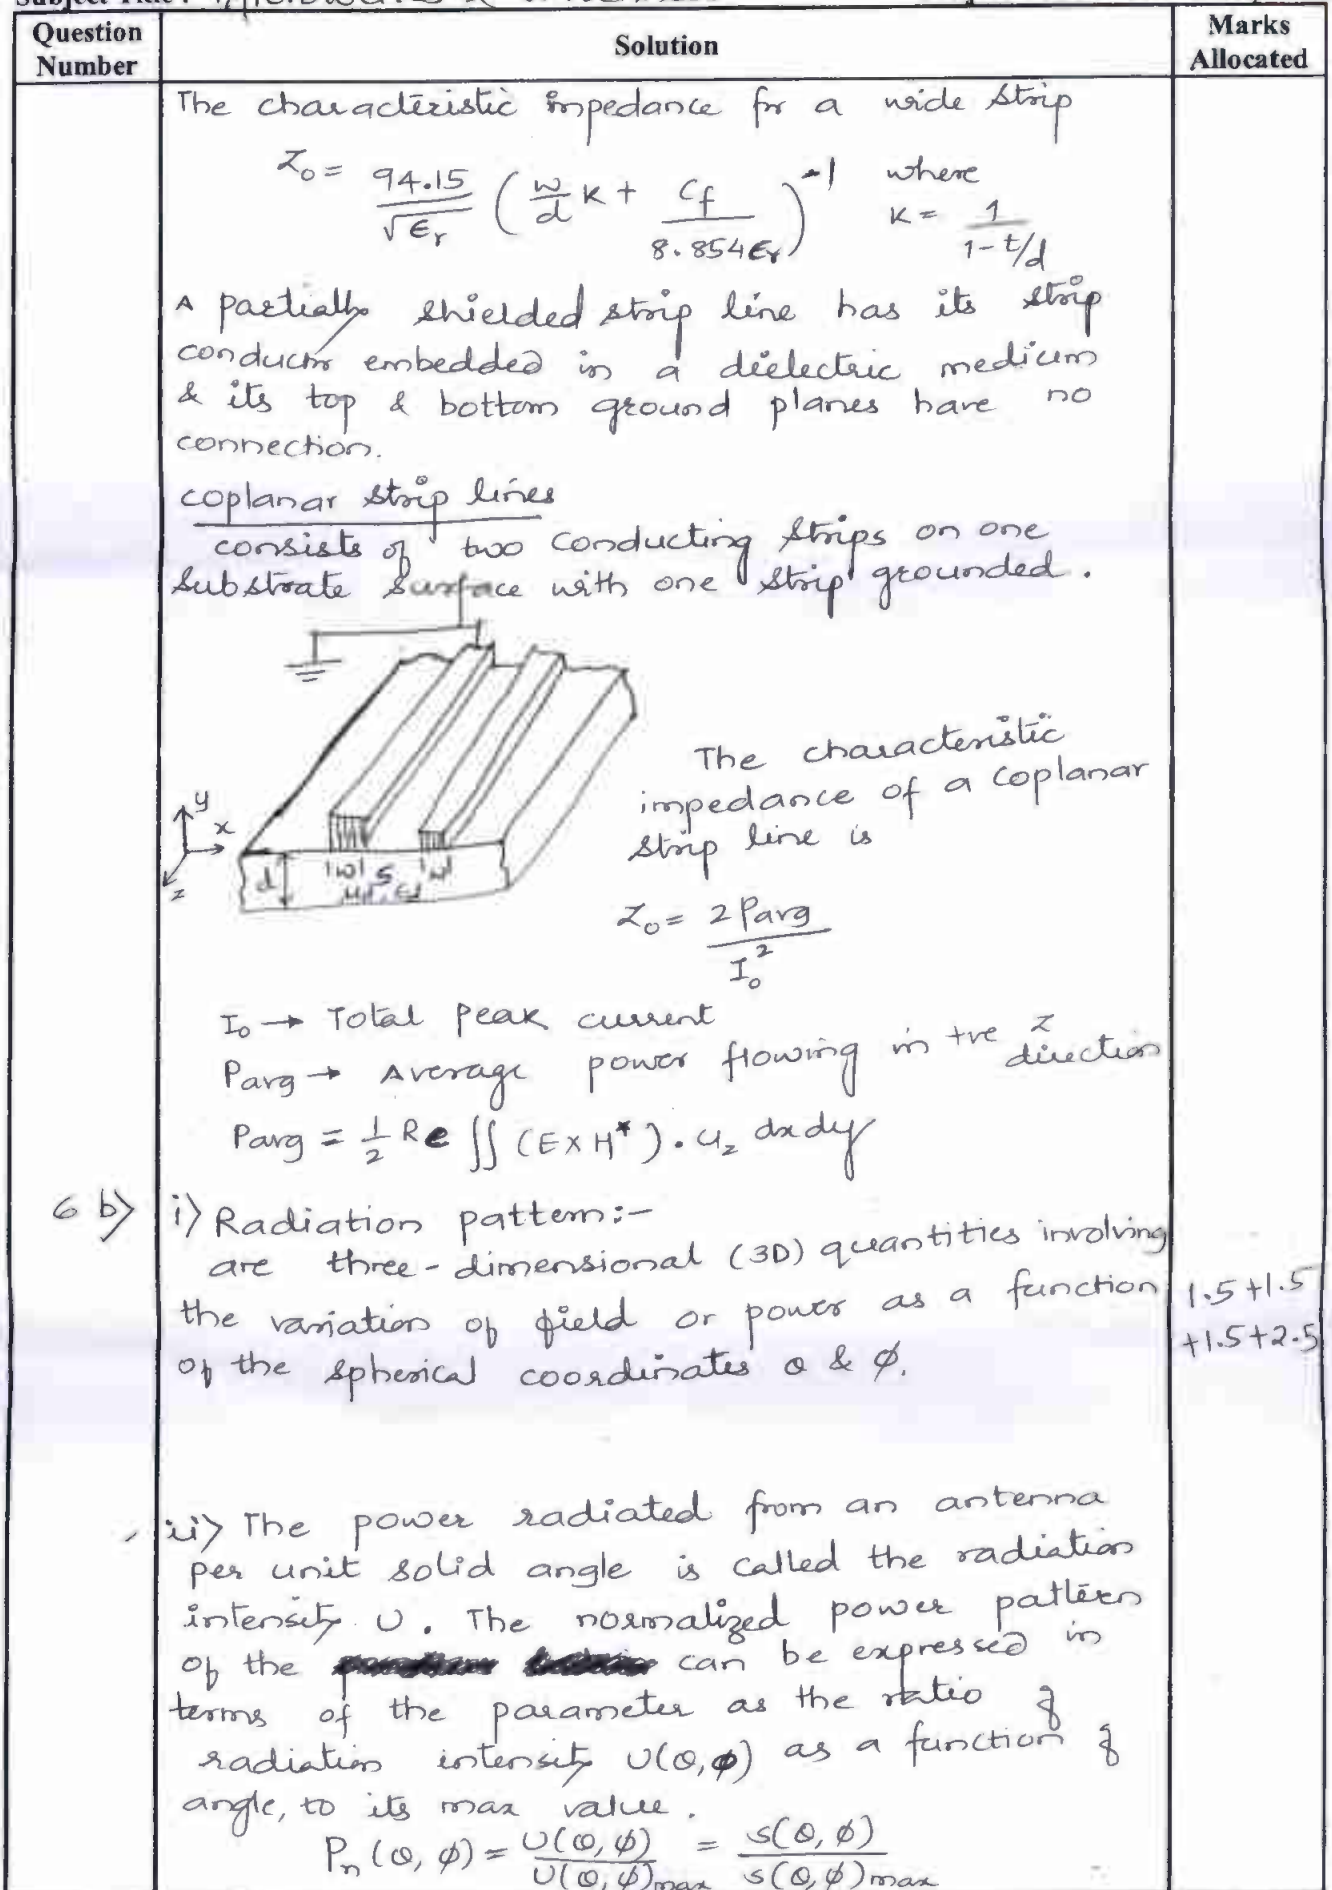 Question Number
Solution
Marks Allocated
The characteristic impedance for a wide strip
Z₀ = 94.15/√εr (w/d K + Cf/8.854εr)⁻¹ where
K = 1/(1-t/d)
A partially shielded strip line has its strip
conductor embedded in a dielectric medium
& its top & bottom ground planes have no
connection.
coplanar strip lines
consists of two conducting strips on one
substrate surface with one strip grounded.
y
x
z
d
w S w
The characteristic
impedance of a coplanar
strip line is
Z₀ = 2Pavg/I₀²
I₀ → Total peak current
Pavg → Average power flowing in +ve z direction
Pavg = 1/2 Re ∬ (E×H*).uz dxdy
6 b) i) Radiation pattern:-
are three-dimensional (3D) quantities involving
the variation of field or power as a function
of the spherical coordinates θ & φ.
1.5+1.5
+1.5+2.5
ii) The power radiated from an antenna
per unit solid angle is called the radiation
intensity U. The normalized power pattern
of the can be expressed in
terms of the parameter as the ratio of
radiation intensity U(θ,φ) as a function of
angle, to its max value.
Pn(θ,φ) = U(θ,φ)/U(θ,φ)max = S(θ,φ)/S(θ,φ)max